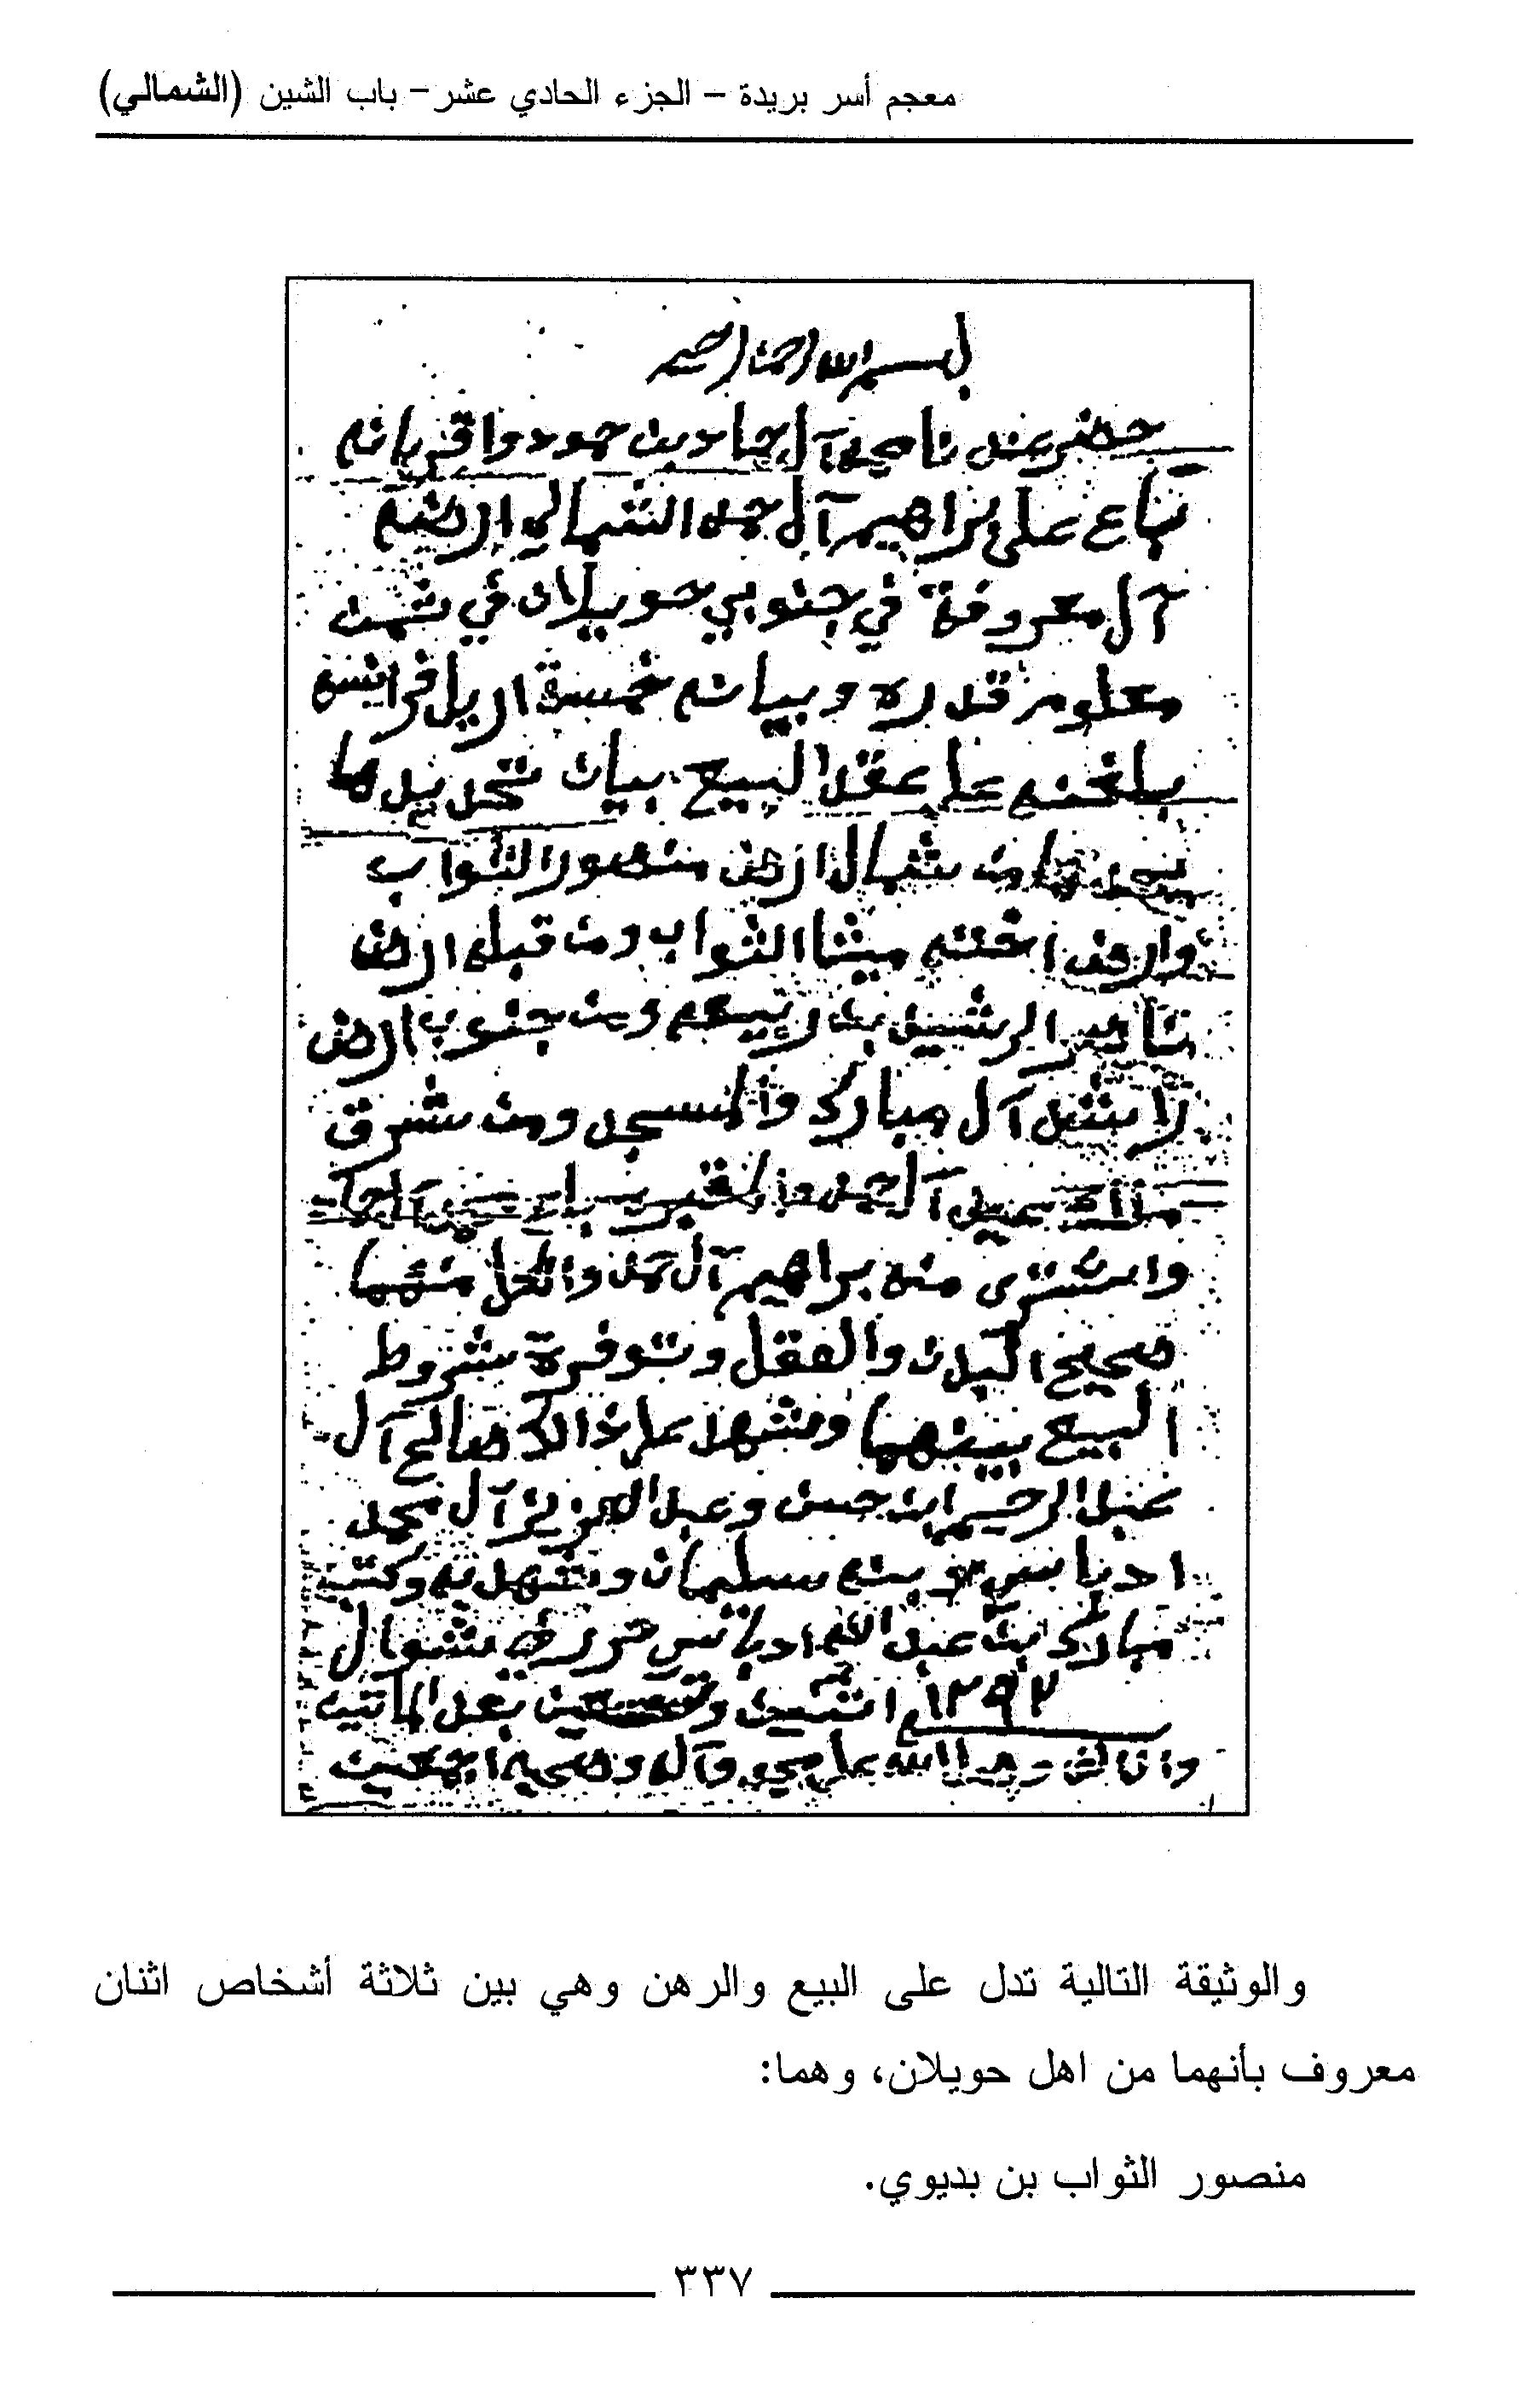 معجم أسر بريدة – الجزء الحادي عشر – باب الشين (الشمالي)
بسم الله الرحمن الرحيم
حضر عندي ناصر آل حمود واقر بانه
بباع على براهيم آل حمد الشمالي ارضه
آل معروفة في جنوبي حويلان في ثمن
معلوم قدره وبيانه خمسة اريل فرانسه
بلغنه على عقد البيع بيان تحديدها
يحدها من شمال ارض منصور الثواب
وارض اخته ميثا الثواب ومن قبله ارض
ناصر الرشيد بن ربيعه ومن جنوب ارض
آل مبارك والمسجد ومن شرق
آل حمد
واشترى منه براهيم آل حمد والكل منهما
صحيح البدن والعقل وتوفرة شروط
البيع بينهما وشهد على ذالك صالح آل
عبد الرحيم ابن حسن وعبد العزيز آل محمد
ادباس وبنه سليمان وشهد به وكتبه
مبارك ابن عبد الله ادباس حرر في شوال
١٢٩٢ اثنين وتسعين بعد الماتين
وصلى الله على محمد وآله وصحبه اجمعين
والوثيقة التالية تدل على البيع والرهن وهي بين ثلاثة أشخاص اثنان
معروف بأنهما من اهل حويلان، وهما:
منصور الثواب بن بديوي.
٣٣٧